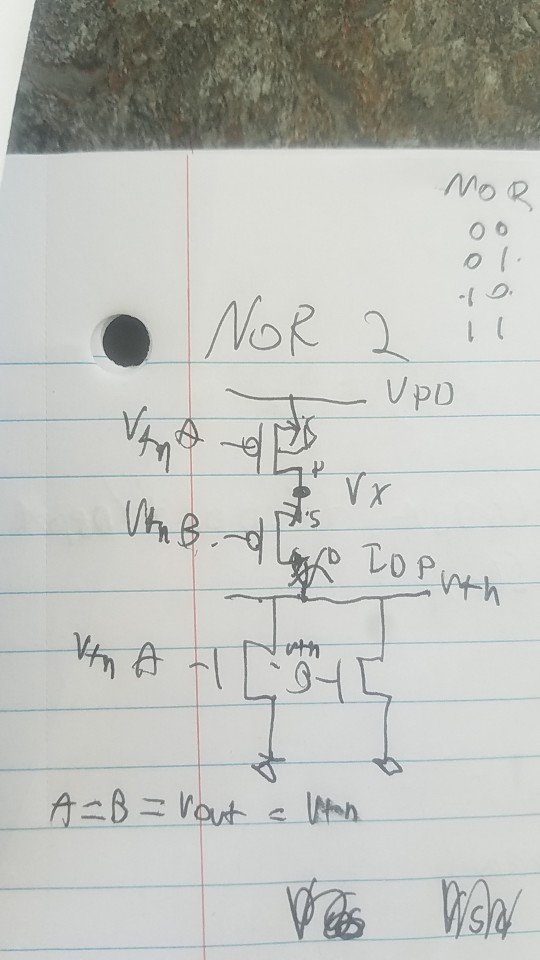 NOR
00
01.
10.
11
NOR 2
VDD
Vtn A
VX
S
Vtn B.
D IDP Vth
Vtn A
Vtn
B
A=B=Vout = Vtn